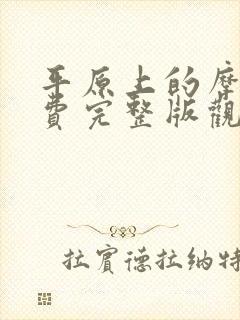 平原上的摩
費完整版觀
拉賓德拉納特